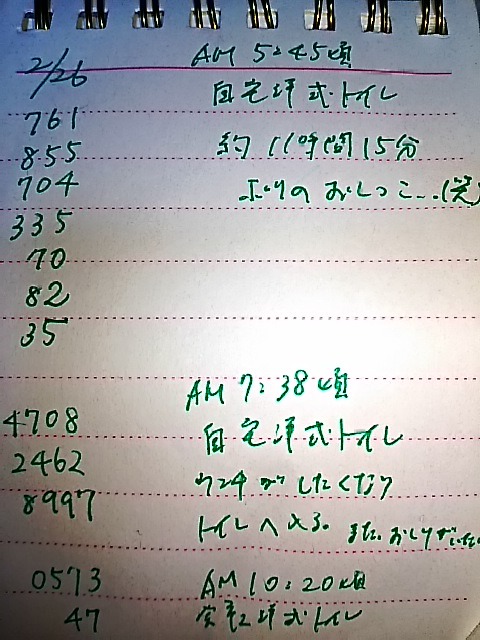 2/26 AM 5:45頃
761 自宅洋式トイレ
855 約11時間15分
704 ぶりのおしっこ…(笑)
335
70
82
35
AM 7:38頃
4708 自宅洋式トイレ
2462 ウンチがしたくなり
8997 トイレへ入る。また、おしりがいた
0573 AM 10:20頃
47 洋式トイレ